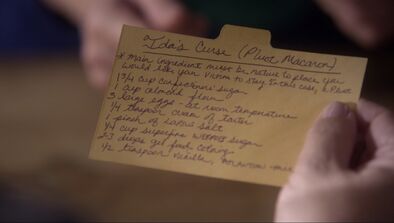 Ida's Curse (Pilot Macaron)
* main ingredient must be native to place you
would like your victim to stay. In this case, a Pilot
1 3/4 cup confectioners' sugar
1 cup almond flour
3 large eggs - at room temperature
1/4 teaspoon cream of tartar
1 pinch of salt
1/4 cup superfine sugar
2-3 drops gel food coloring
1/2 teaspoon vanilla,